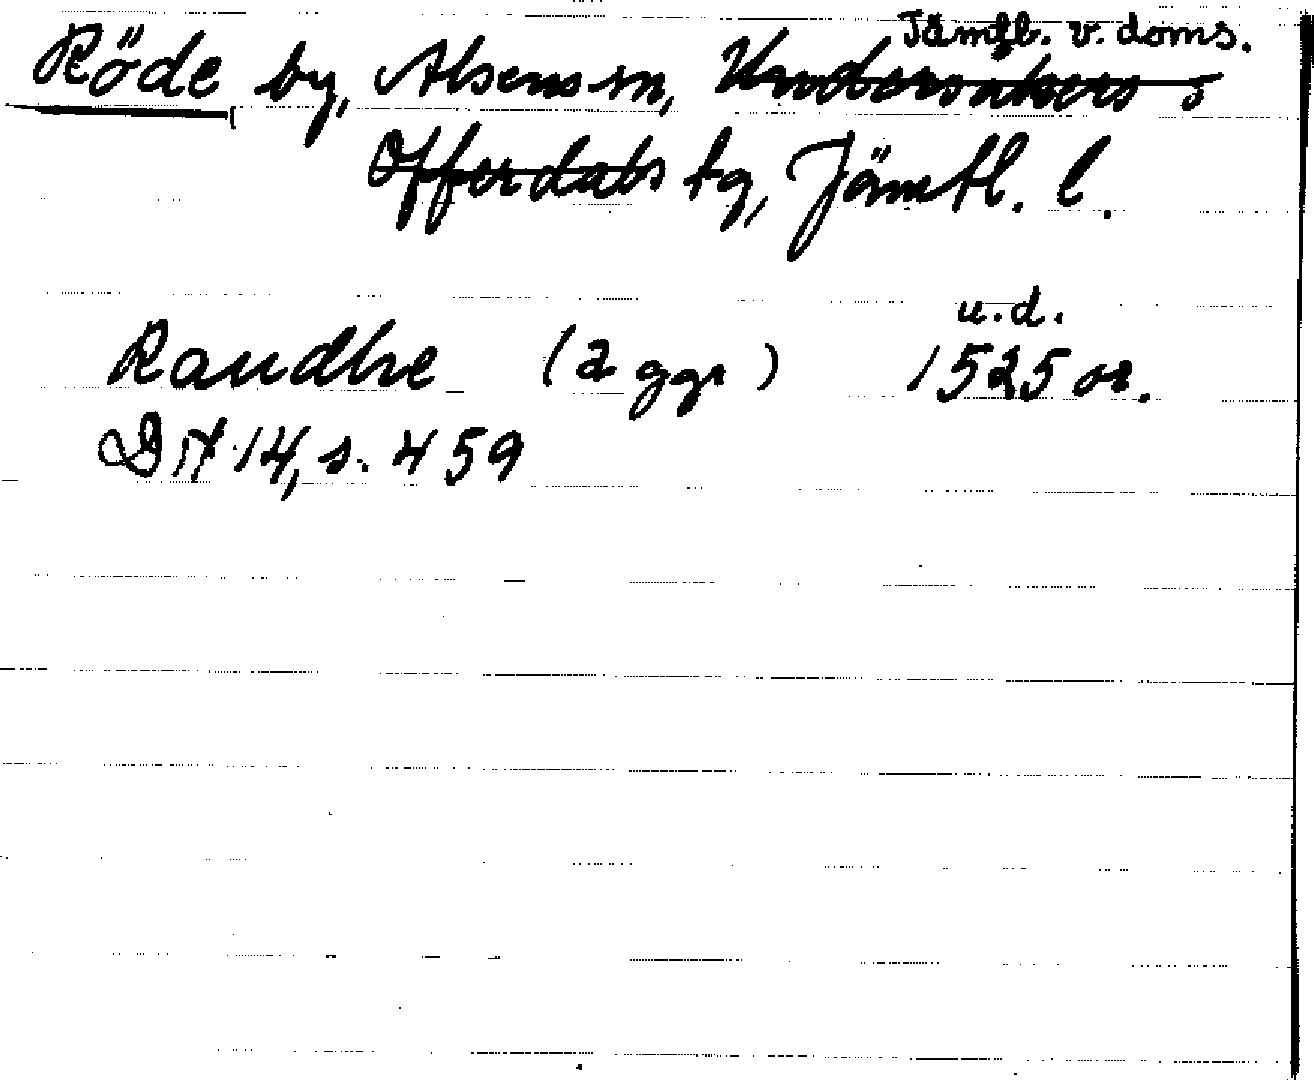 Jämtl. v. doms.
Röde by, Alsens sn, Undersåkers o
Offerdals tg, Jämtl. l.
u.d.
Raudhe (2 ggr) 1525 or.
DN 14, s. 459